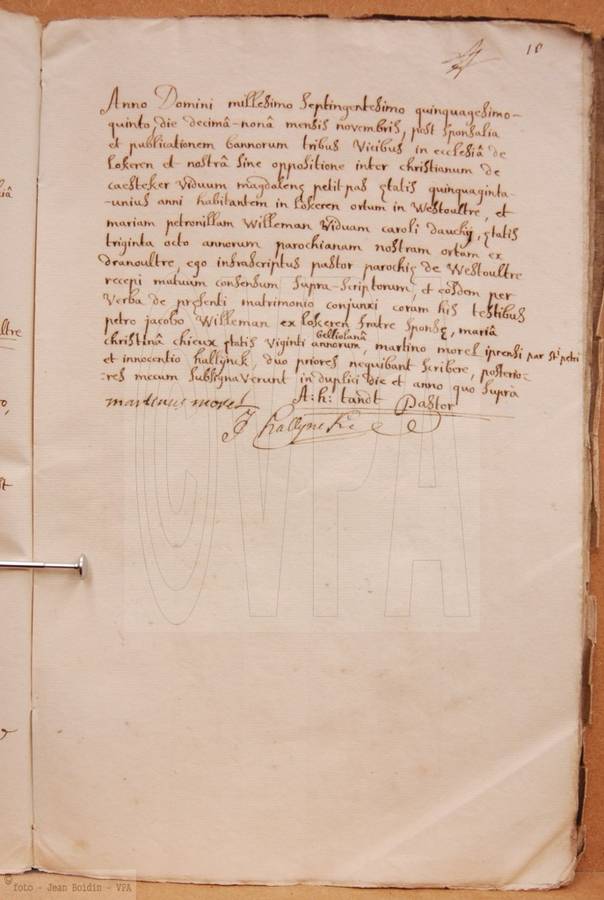 10
Anno Domini millesimo septingentesimo quinquagesimo-
quinto, die decimâ-nonâ mensis novembris, post sponsalia
et publicationem bannorum tribus vicibus in ecclesiâ de
lokeren et nostrâ sine oppositione inter christianum de
caesteker viduum magdalenę petit pas ętatis quinquaginta-
-unius anni habitantem in lokeren ortum in Westoultre, et
mariam petronillam Willeman viduam caroli dauchy, ętatis
triginta octo annorum parochianam nostram ortam ex
dranoultre, ego infrascriptus pastor parochię de Westoultre
recepi mutuum consensum supra-scriptorum, et eosdem per
verba de pręsenti matrimonio conjunxi coram his testibus
petro jacobo Willeman ex lokeren fratre sponsę, mariâ
christinâ chieux ętatis viginti annorum, martino morel iprensi par sti petri
et innocentio hallynck, duo priores nequibant scribere, posterio=
=res mecum subsignaverunt in duplici die et anno quo supra
martinus morel A: h: tandt Pastor
J hallynck
ltre
©VPA
©foto - Jean Boidin - VPA